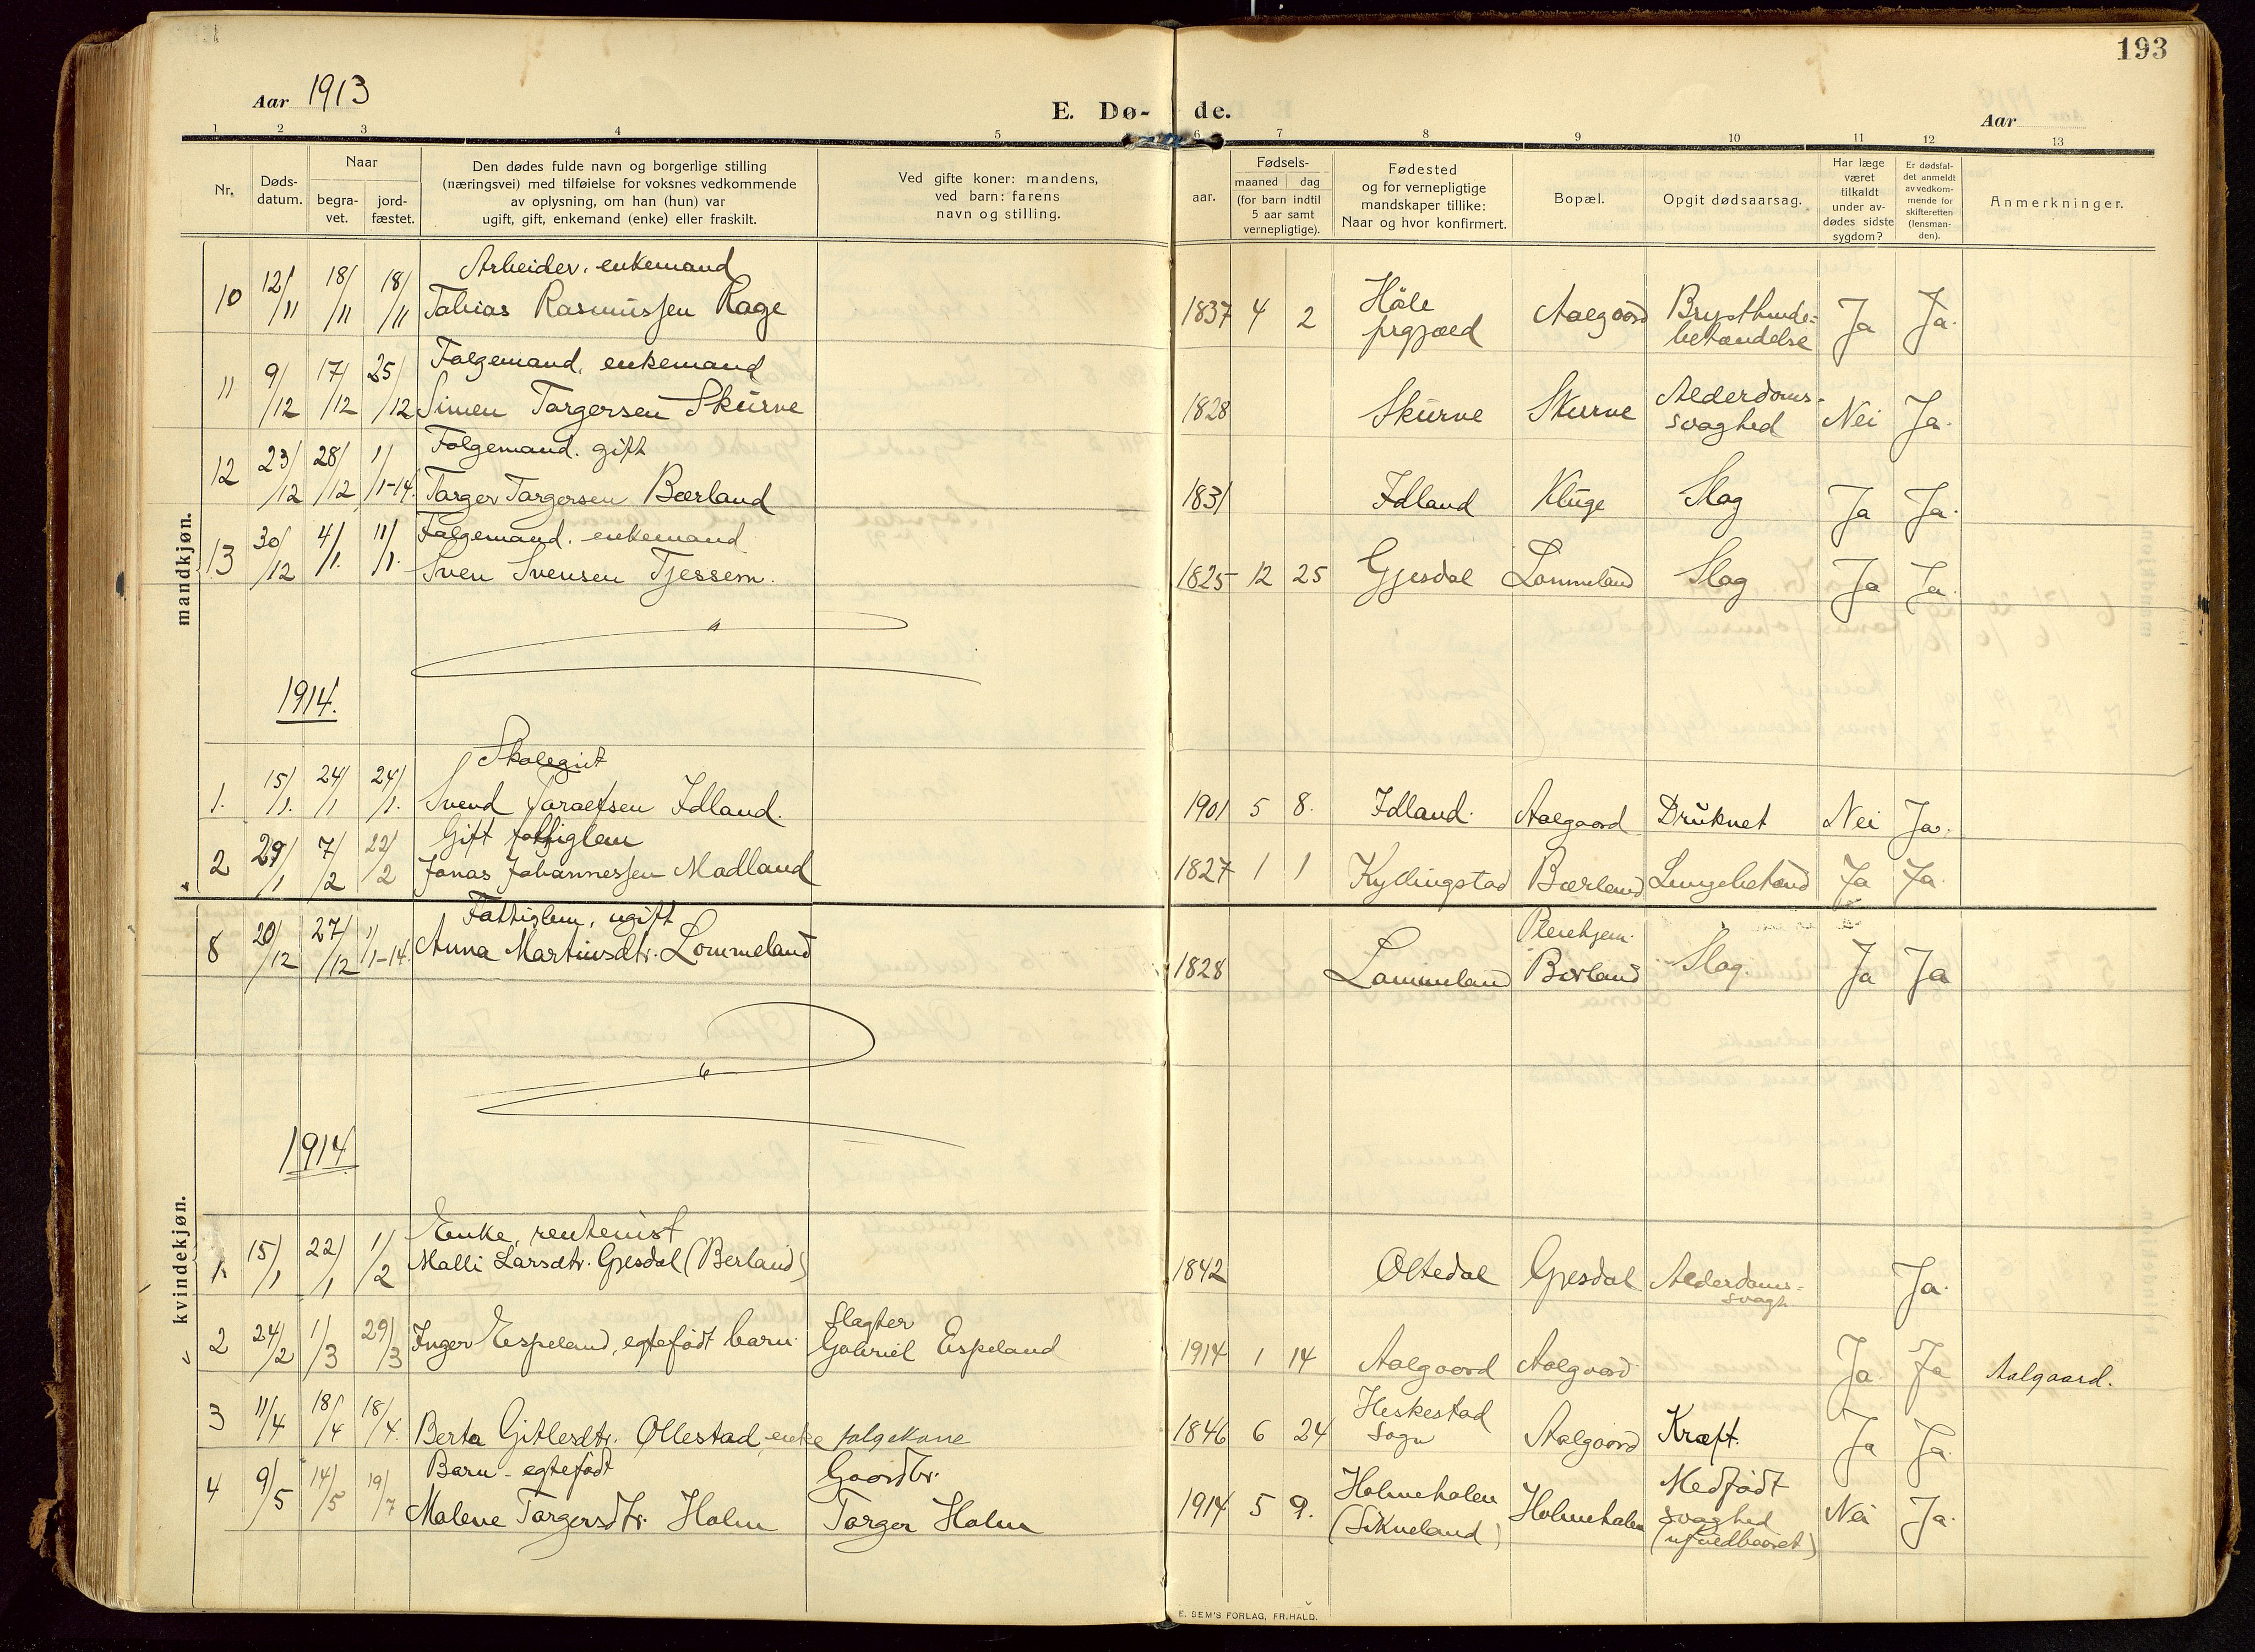 193
Aar 1913
E. Dø- de.
Aar
1 2 3 4 5 6 7 8 9 10 11 12 13
Nr.
Døds-
datum.
Naar
begra-
vet.
jord-
fæstet.
Den dødes fulde navn og borgerlige stilling
(næringsvei) med tilføielse for voksnes vedkommende
av oplysning, om han (hun) var
ugift, gift, enkemand (enke) eller fraskilt.
Ved gifte koner: mandens,
ved barn: farens
navn og stilling.
Fødsels-
aar.
maaned dag
(for barn indtil
5 aar samt
vernepligtige).
Fødested
og for vernepligtige
mandskaper tillike:
Naar og hvor konfirmert.
Bopæl.
Opgit dødsaarsag.
Har læge
været
tilkaldt
under av-
dødes sidste
sygdom?
Er dødsfal-
det anmeldt
av vedkom-
mende for
skifteretten
(lensman-
den).
Anmerkninger.
mandkjøn.
Arbeider, enkemand
10 12/11 18/11 18/11 Tobias Rasmussen Rage 1837 4 2 Höle prgjæld Aalgaard Brysthinde=betændelse Ja Ja.
Folgemand, enkemand
11 9/12 17/12 25/12 Simen Torgersen Skurve 1828 Skurve Skurve Alderdoms-svaghed Nei Ja.
Folgemand. gift
12 23/12 28/12 1/1-14. Torger Torgersen Bærland 1831 Idland Kluge Slag Ja Ja.
Folgemand. enkemand
13 30/12 4/1. 11/1. Sven Svensen Tjessem. 1825 12 25 Gjesdal Lommeland Slag Ja Ja.
1914.
Skolegut
1. 15/1. 24/1 24/1. Svend Idland. 1901 5 8. Idland. Aalgaard Druknet Nei Ja.
Gift fattiglem
2 29/1 7/2 22/2 Jonas Johannessen Madland 1827 1 1 Kyllingstad Bærland Lungebetænd Ja Ja
kvindekjøn.
Fattiglem, ugift
8 20/12 27/12 1/1-14. Anna Martinsdtr. Lommeland 1828 Lommeland Pleiehjem. Borland Slag. Ja Ja
1914
Enke, rentenist
1. 15/1 22/1 1/2 Malli Larsdtr. Gjesdal (Berland) 1842 Oltedal Gjesdal Alderdoms=svagh Ja.
2 24/2 1/3 29/3 Inger Espeland, egtefödt barn. Slagter Gabriel Espeland 1914 1 14 Aalgaard Aalgaard Ja Ja Aalgaard.
3 11/4 18/4 18/4. Berta Gitlesdtr. Ollestad, enke folgekone 1846 6 24 Heskestad Sogn Aalgaard Kræft. Ja Ja.
Barn - egtefödt
4 9/5 14/5 19/7 Malene Torgersdtr. Holm Gaardbr. Torger Holm 1914 5 9. Holmehalen (Sikveland) Holmehalen Medfödt svaghed (ufuldbaaret) Nei Ja.
E. SEM'S FORLAG, FR.HALD.